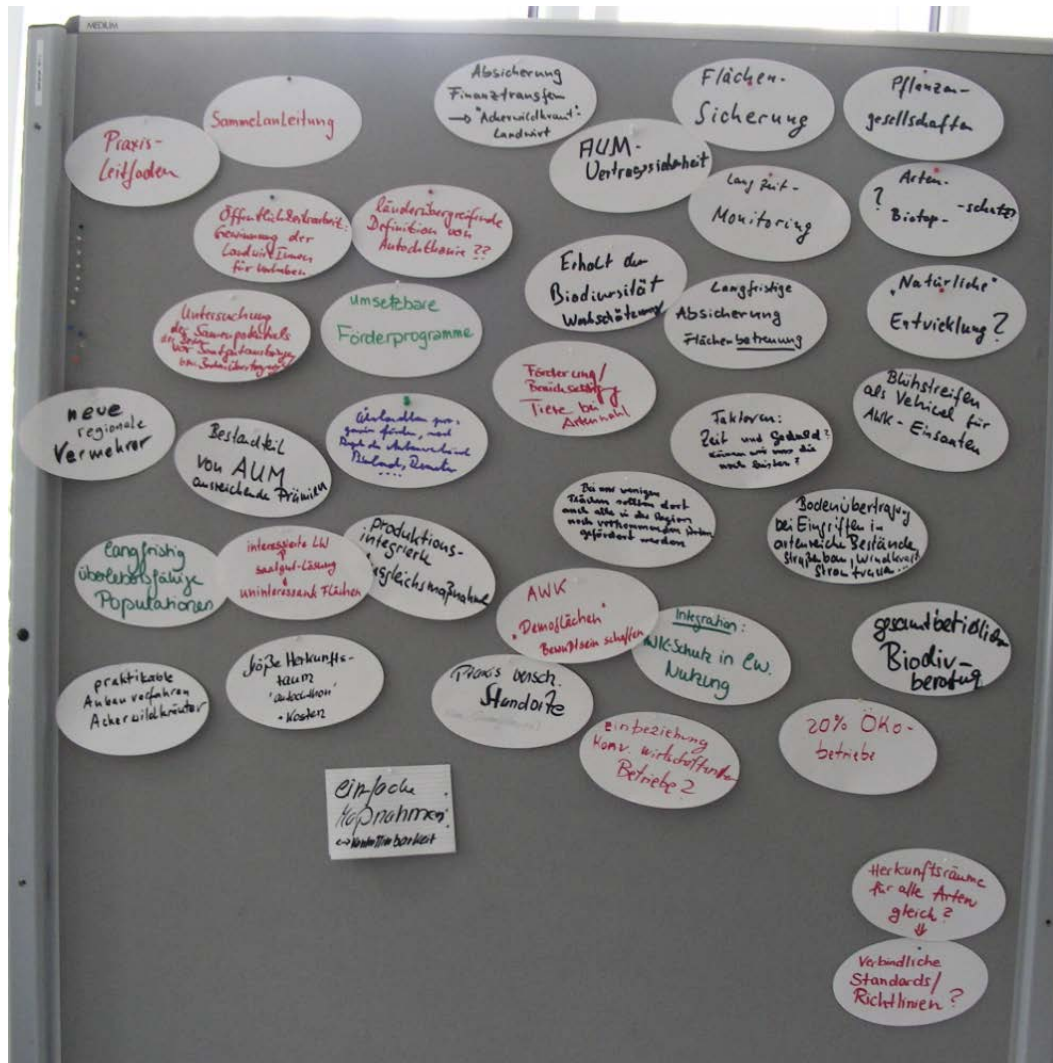 MEDIUM
Praxis-
Leitfaden
Sammelanleitung
Absicherung
Finanztransfer
→ "Ackerwildkraut"-
Landwirt
Flächen-
Sicherung
Pflanzen-
gesellschaften
AUM-
Vertragssicherheit
Langzeit-
Monitoring
Arten-
? -schutz?
Biotop-
Öffentlichkeitsarbeit:
Gewinnung der
LandwirtInnen
für Vorhaben
länderübergreifende
Definition von
Autochthonie ??
Erhalt der
Biodiversität
Wertschätzung
Langfristige
Absicherung
Flächenbetreuung
"Natürliche"
Entwicklung?
Untersuchung
des Samenpotentials
im Boden
vor Saatgutausbringung
bzw. Bodenübertragung
umsetzbare
Förderprogramme
Förderung/
Tiere bei
Artenwahl
Blühstreifen
als Vehical für
AWK-Einsaaten
neue
regionale
Vermehrer
Bestandteil
von AUM
ausreichende Prämien
Bioland, Demeter
....
Faktoren:
Zeit und Geduld?
können wir uns die
noch leisten?
Bei nur wenigen
Flächen sollten dort
auch alle in der Region
noch vorkommenden Arten
gefördert werden
Bodenübertragung
bei Eingriffen in
artenreiche Bestände
Straßenbau, Windkraft
Stromtrassen...
langfristig
überlebensfähige
Populationen
interessierte LW
saatgut-Lösung
uninteressante Flächen
produktions-
integrierte
Ausgleichsmaßnahme
AWK
"Demoflächen"
Bewußtsein schaffen
Integration:
AWK-Schutz in lw.
Nutzung
gesamtbetriebliche
Biodiv-
beratung
praktikable
Anbauverfahren
Ackerwildkräuter
Größe Herkunfts-
raum
"autochthon"
• Kosten
Praxis versch.
Standorte
einbeziehung
Konv. wirtschaftenden
Betriebe?
20% Öko-
betriebe
einfache
Maßnahmen!
↔ Kontrollierbarkeit
Herkunftsräume
für alle Arten
gleich?
⇓
Verbindliche
Standards/
Richtlinien?